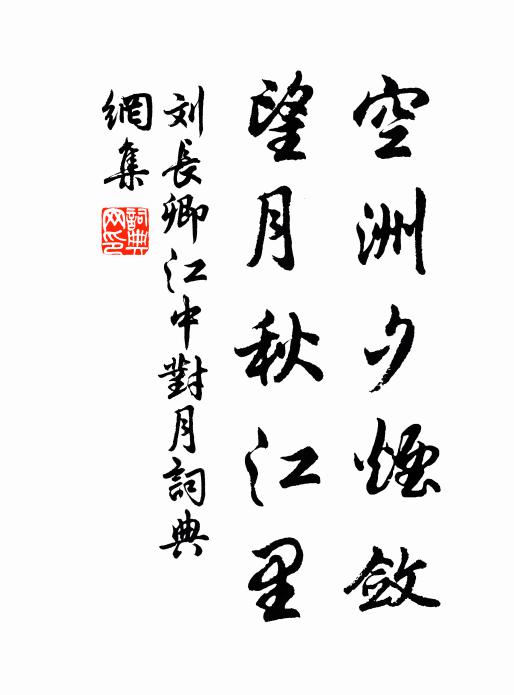 空洲夕煙斂
望月秋江里
刘長卿江中對月詞典
網集
詞典网印